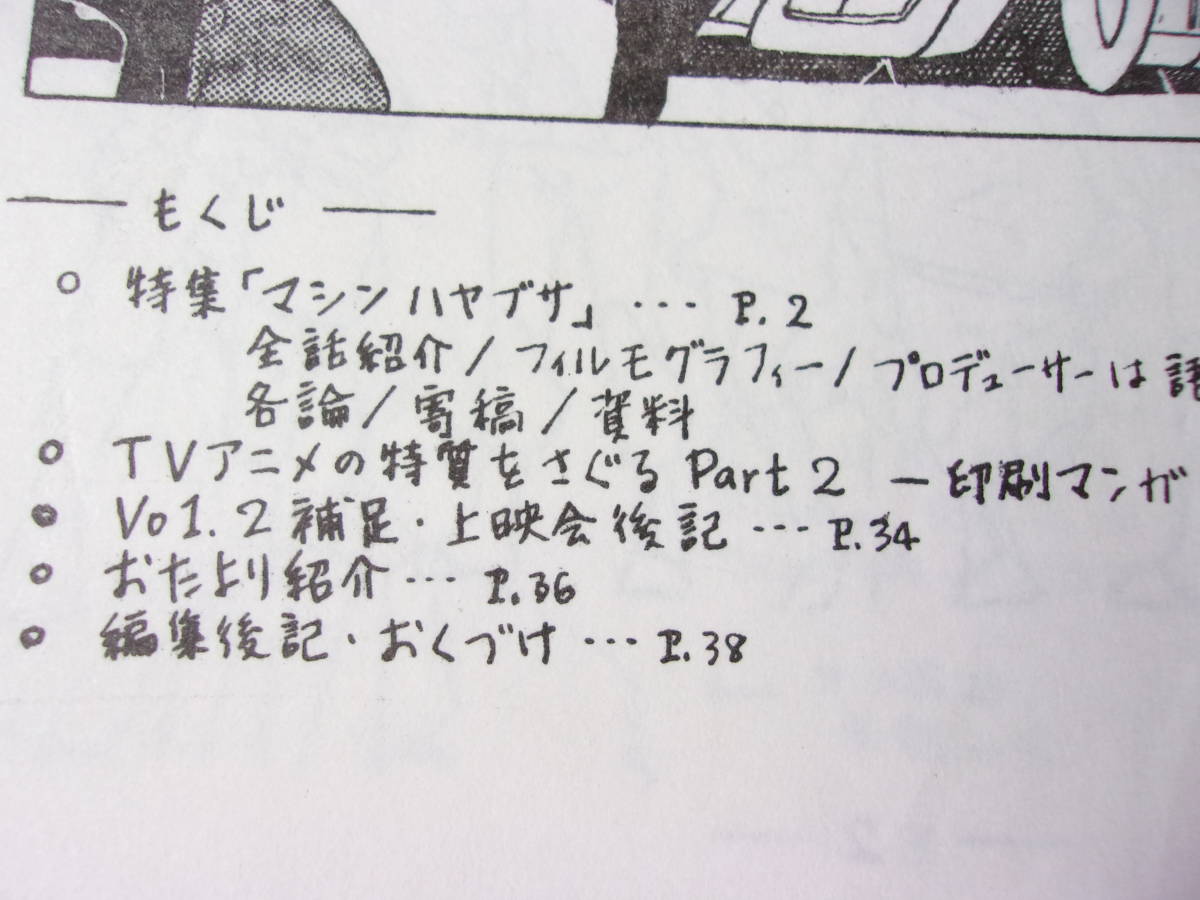 もくじ
○ 特集「マシンハヤブサ」… P.2
全話紹介/フィルモグラフィー/プロデューサーは語
各論/寄稿/資料
○ TVアニメの特質をさぐる Part 2 ー印刷マンガ
○ Vol.2補足・上映会後記 … P.34
○ おたより紹介 … P.36
○ 編集後記・おくづけ … P.38